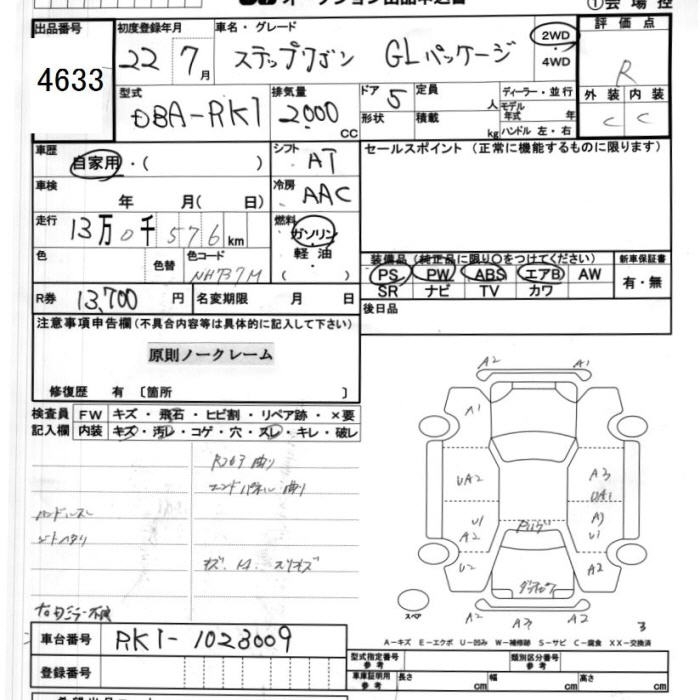 出品番号
4633
初度登録年月
22 7月
車名・グレード
ステップワゴン GLパッケージ
2WD
・
4WD
①会場控
評価点
R
外装 内装
C C
型式
DBA-RK1
排気量
2000
CC
ドア 5
形状
定員
人
積載
kg
ディーラー・並行
モデル
年式 年
ハンドル 左・右
車歴
自家用・( )
シフト AT
車検
年 月( 日)
冷房 AAC
走行 13万0千576km
燃料
ガソリン
・
軽油
( )
色
色替
色コード
NH737M
R券 13,700 円
名変期限 月 日
セールスポイント (正常に機能するものに限ります)
装備品 (純正品に限り○をつけてください)
PS PW ABS エアB AW
SR ナビ TV カワ
新車保証書
有・無
後日品
注意事項申告欄(不具合内容等は具体的に記入して下さい)
原則ノークレーム
修復歴 有 〔箇所 〕
検査員
記入欄
FW キズ・飛石・ヒビ割・リペア跡・×要
内装 キズ・汚レ・コゲ・穴・スレ・キレ・破レ
曲り
曲り
A2 A1
A1
UA2 A3
UA1
U1 A2
U2 A2
A2 A3 A2
スペア
3
A−キズ E−エクボ U−凹み W−補修跡 S−サビ C−腐食 XX−交換済
車台番号 RK1-1023009
登録番号
型式指定番号
参考
類別区分番号
参考
車庫証明用
参考
長さ cm
幅 cm
高さ cm